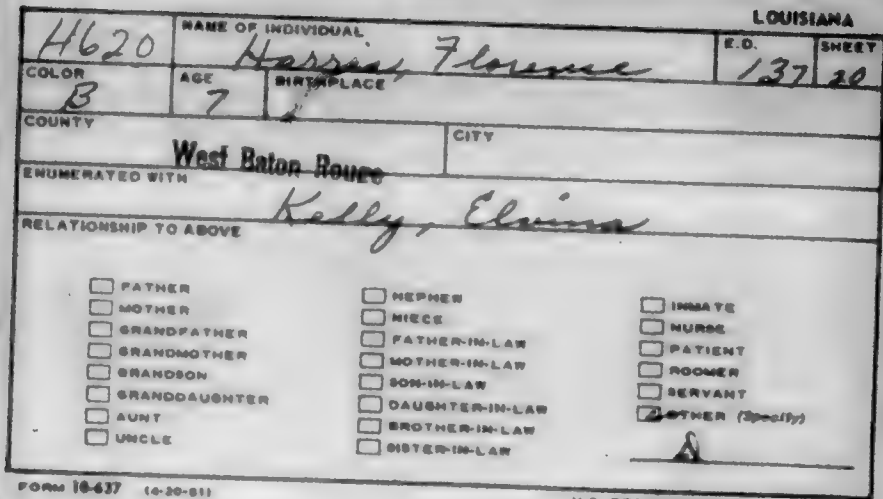 LOUISIANA
H620 NAME OF INDIVIDUAL Harris, Florence E.D. 137 SHEET 20
COLOR B AGE 7 BIRTHPLACE
COUNTY West Baton Rouge CITY
ENUMERATED WITH Kelly, Elvina
RELATIONSHIP TO ABOVE
FATHER
MOTHER
GRANDFATHER
GRANDMOTHER
GRANDSON
GRANDDAUGHTER
AUNT
UNCLE
NEPHEW
NIECE
FATHER-IN-LAW
MOTHER-IN-LAW
SON-IN-LAW
DAUGHTER-IN-LAW
BROTHER-IN-LAW
SISTER-IN-LAW
INMATE
NURSE
PATIENT
ROOMER
SERVANT
OTHER (Specify)
FORM 10-637 (4-20-61)